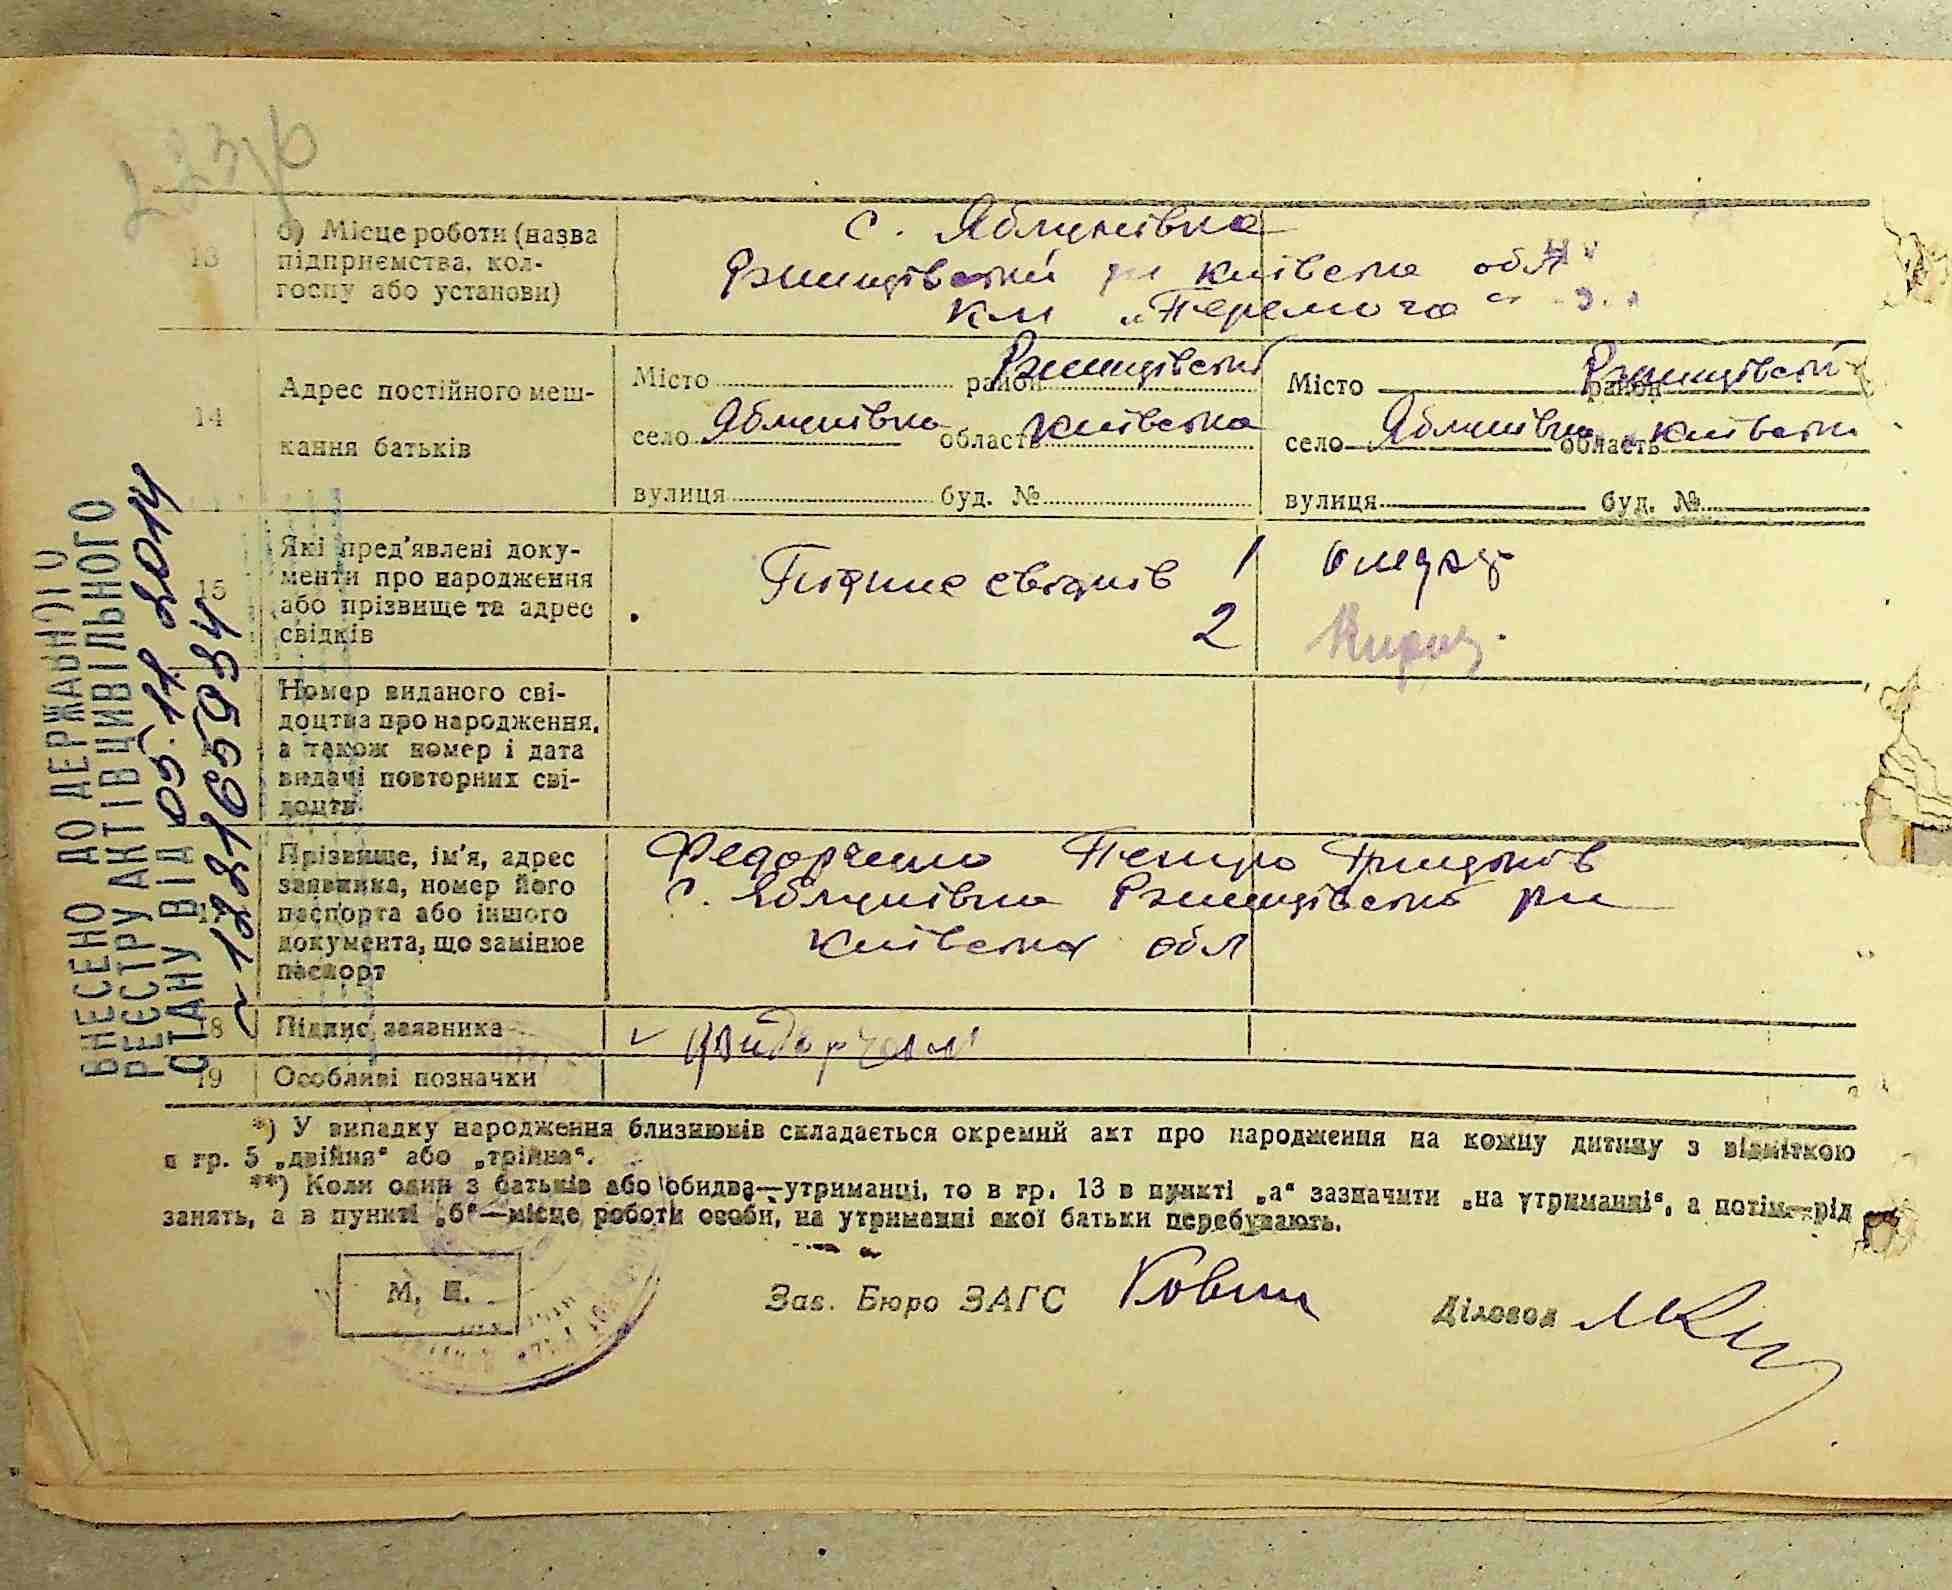 223
13
б) Місце роботи (назва
підприємства, кол-
госпу або установи)
с. Яблунівка
Ржищівський рн Київська обл
"Перемога"
14
Адрес постійного меш-
кання батьків
Місто район Ржищівський
село Яблунівка область Київська
вулиця буд. №
Місто район Ржищівський
село Яблунівка область Київська
вулиця буд. №
15
Які пред'явлені доку-
менти про народження
або прізвище та адрес
свідків
Підпис свідків 1
2
Номер виданого сві-
доцтва про народження,
а також номер і дата
видачі повторних сві-
доцтв
17
Прізвище, ім'я, адрес
заявника, номер його
паспорта або іншого
документа, що замінює
паспорт
Федорченко Петро
с. Яблунівка Ржищівського рн
Київська обл
18
Підпис заявника
19
Особливі позначки
*) У випадку народження близнюків складається окремий акт про народження на кожну дитину з відміткою
в гр. 5 „двійня“ або „трійня“.
**) Коли один з батьків або обидва—утриманці, то в гр. 13 в пункті „а“ зазначити „на утриманні“, а потім—рід
занять, а в пункті „б“—місце роботи особи, на утриманні якої батьки перебувають.
М. П.
Зав. Бюро ЗАГС
Діловод
ВНЕСЕНО ДО ДЕРЖАВНОГО
РЕЄСТРУ АКТІВ ЦИВІЛЬНОГО
СТАНУ ВІД 05.11 2014